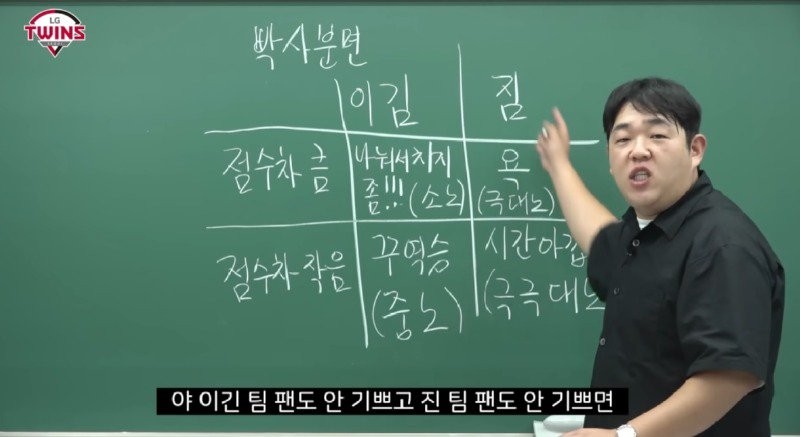 LG
TWINS
빡사분면
이김 짐
점수차 큼 나눠서 치지 욕
좀!!! (소노) (극대노)
점수차 작음 꾸역승 시간아깝
(중노) (극극대노
야 이긴 팀 팬도 안 기쁘고 진 팀 팬도 안 기쁘면